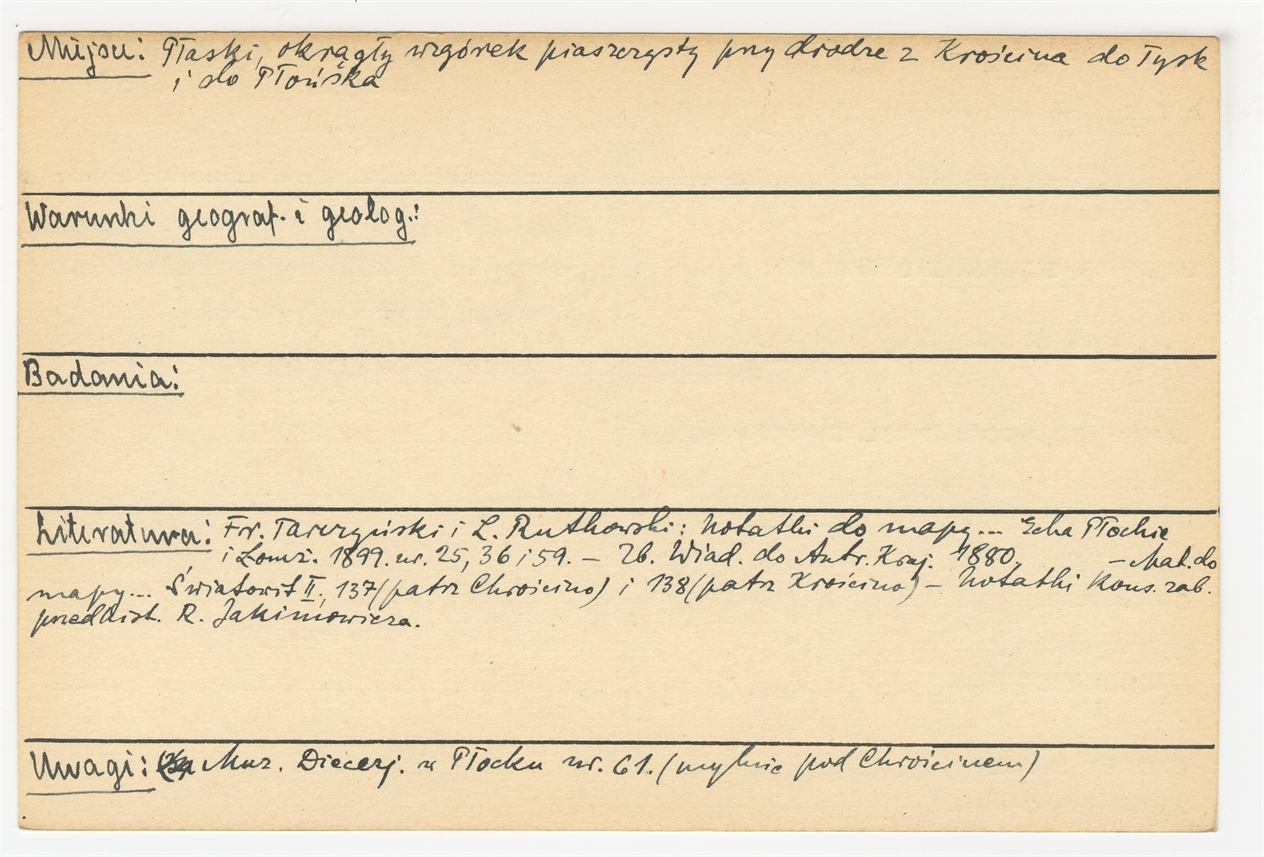 Miejsce: Płaski, okrągły wzgórek piaszczysty przy drodze z Krościna do Łysk
i do Płońska
Warunki geograf. i geolog.:
Badania:
Literatura: Fr. Tarczyński i L. Rutkowski: Notatki do mapy... Echa Płockie
i Łomż. 1899. nr. 25, 36 i 59. – Zb. Wiad. do Antr. Kraj. 1880, – Mat. do
mapy... Światowit II, 137 (patrz Chrościno) i 138 (patrz Krościno) – Notatki Kons. zab.
przedhist. R. Jakimowicza.
Uwagi: Muz. Diecezj. w Płocku nr. 61. (mylnie pod Chrościnem)